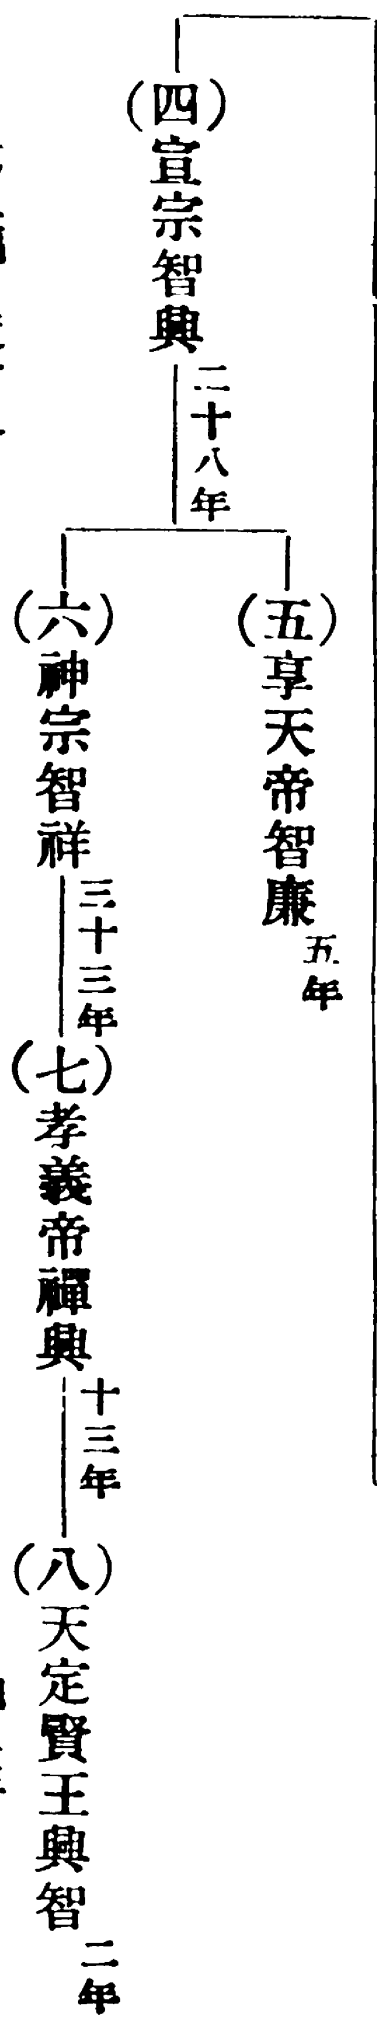 (四)宣宗智興
二十八年
(五)享天帝智廉
五年
(六)神宗智祥
三十三年
(七)孝義帝禪興
十三年
(八)天定賢王興智
二年